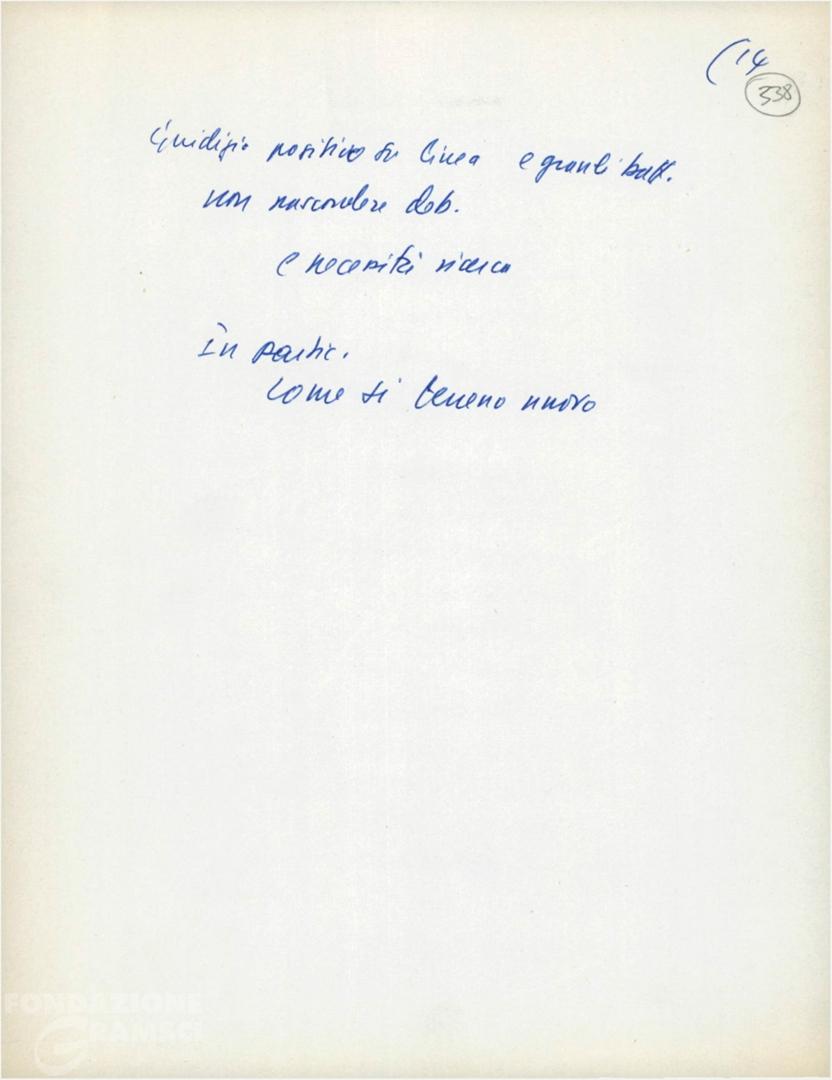 (14
338
Giudizio positivo su linea e grandi batt.
non nascondere deb.
e necessità ricerca
In partic.
Come si terreno nuovo
FONDAZIONE
GRAMSCI